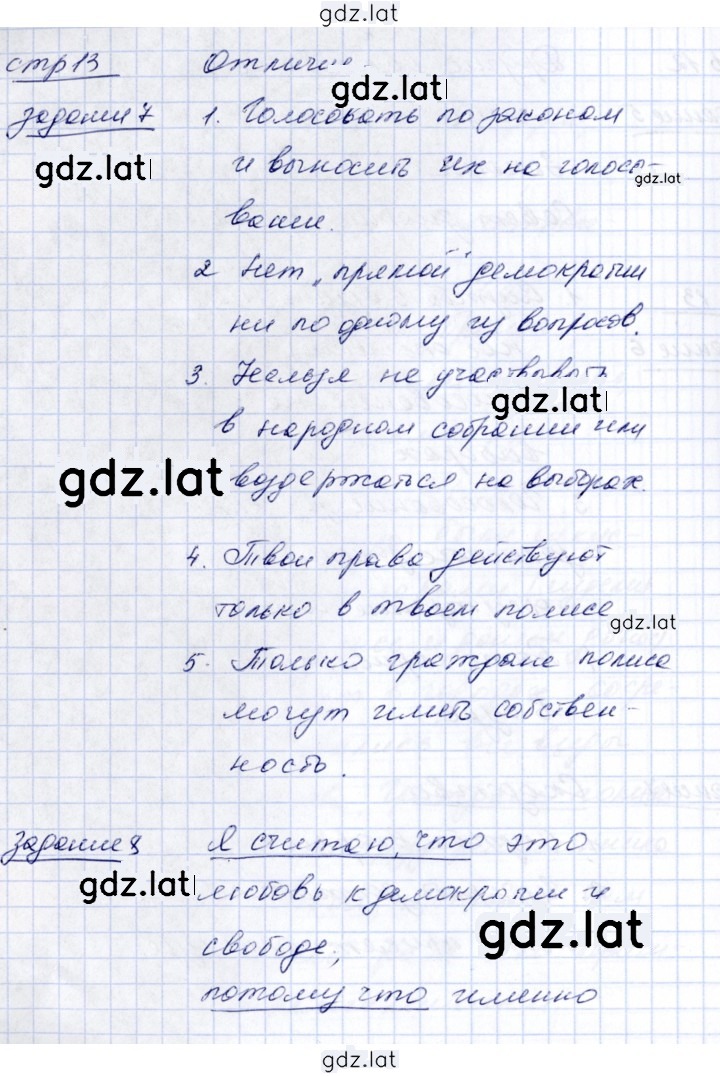 gdz.lat
стр13 Отличи
gdz.lat
задани 7 1. Голосовать по законам
gdz.lat
и выносить их на голосо-
gdz.lat
вание.
2 Нет „прямой" демократии
ни по одному из вопросов.
3. Нельзя не участвовать
gdz.lat
в народном собрании или
gdz.lat
воздержаться на выборах.
4. Твои права действуют
только в твоем полисе
gdz.lat
5. Только граждане полиса
могут иметь собствен-
ность.
Задание 8 Я считаю, что это
gdz.lat
любовь к демократии и
gdz.lat
свободе,
потому что именно
gdz.lat